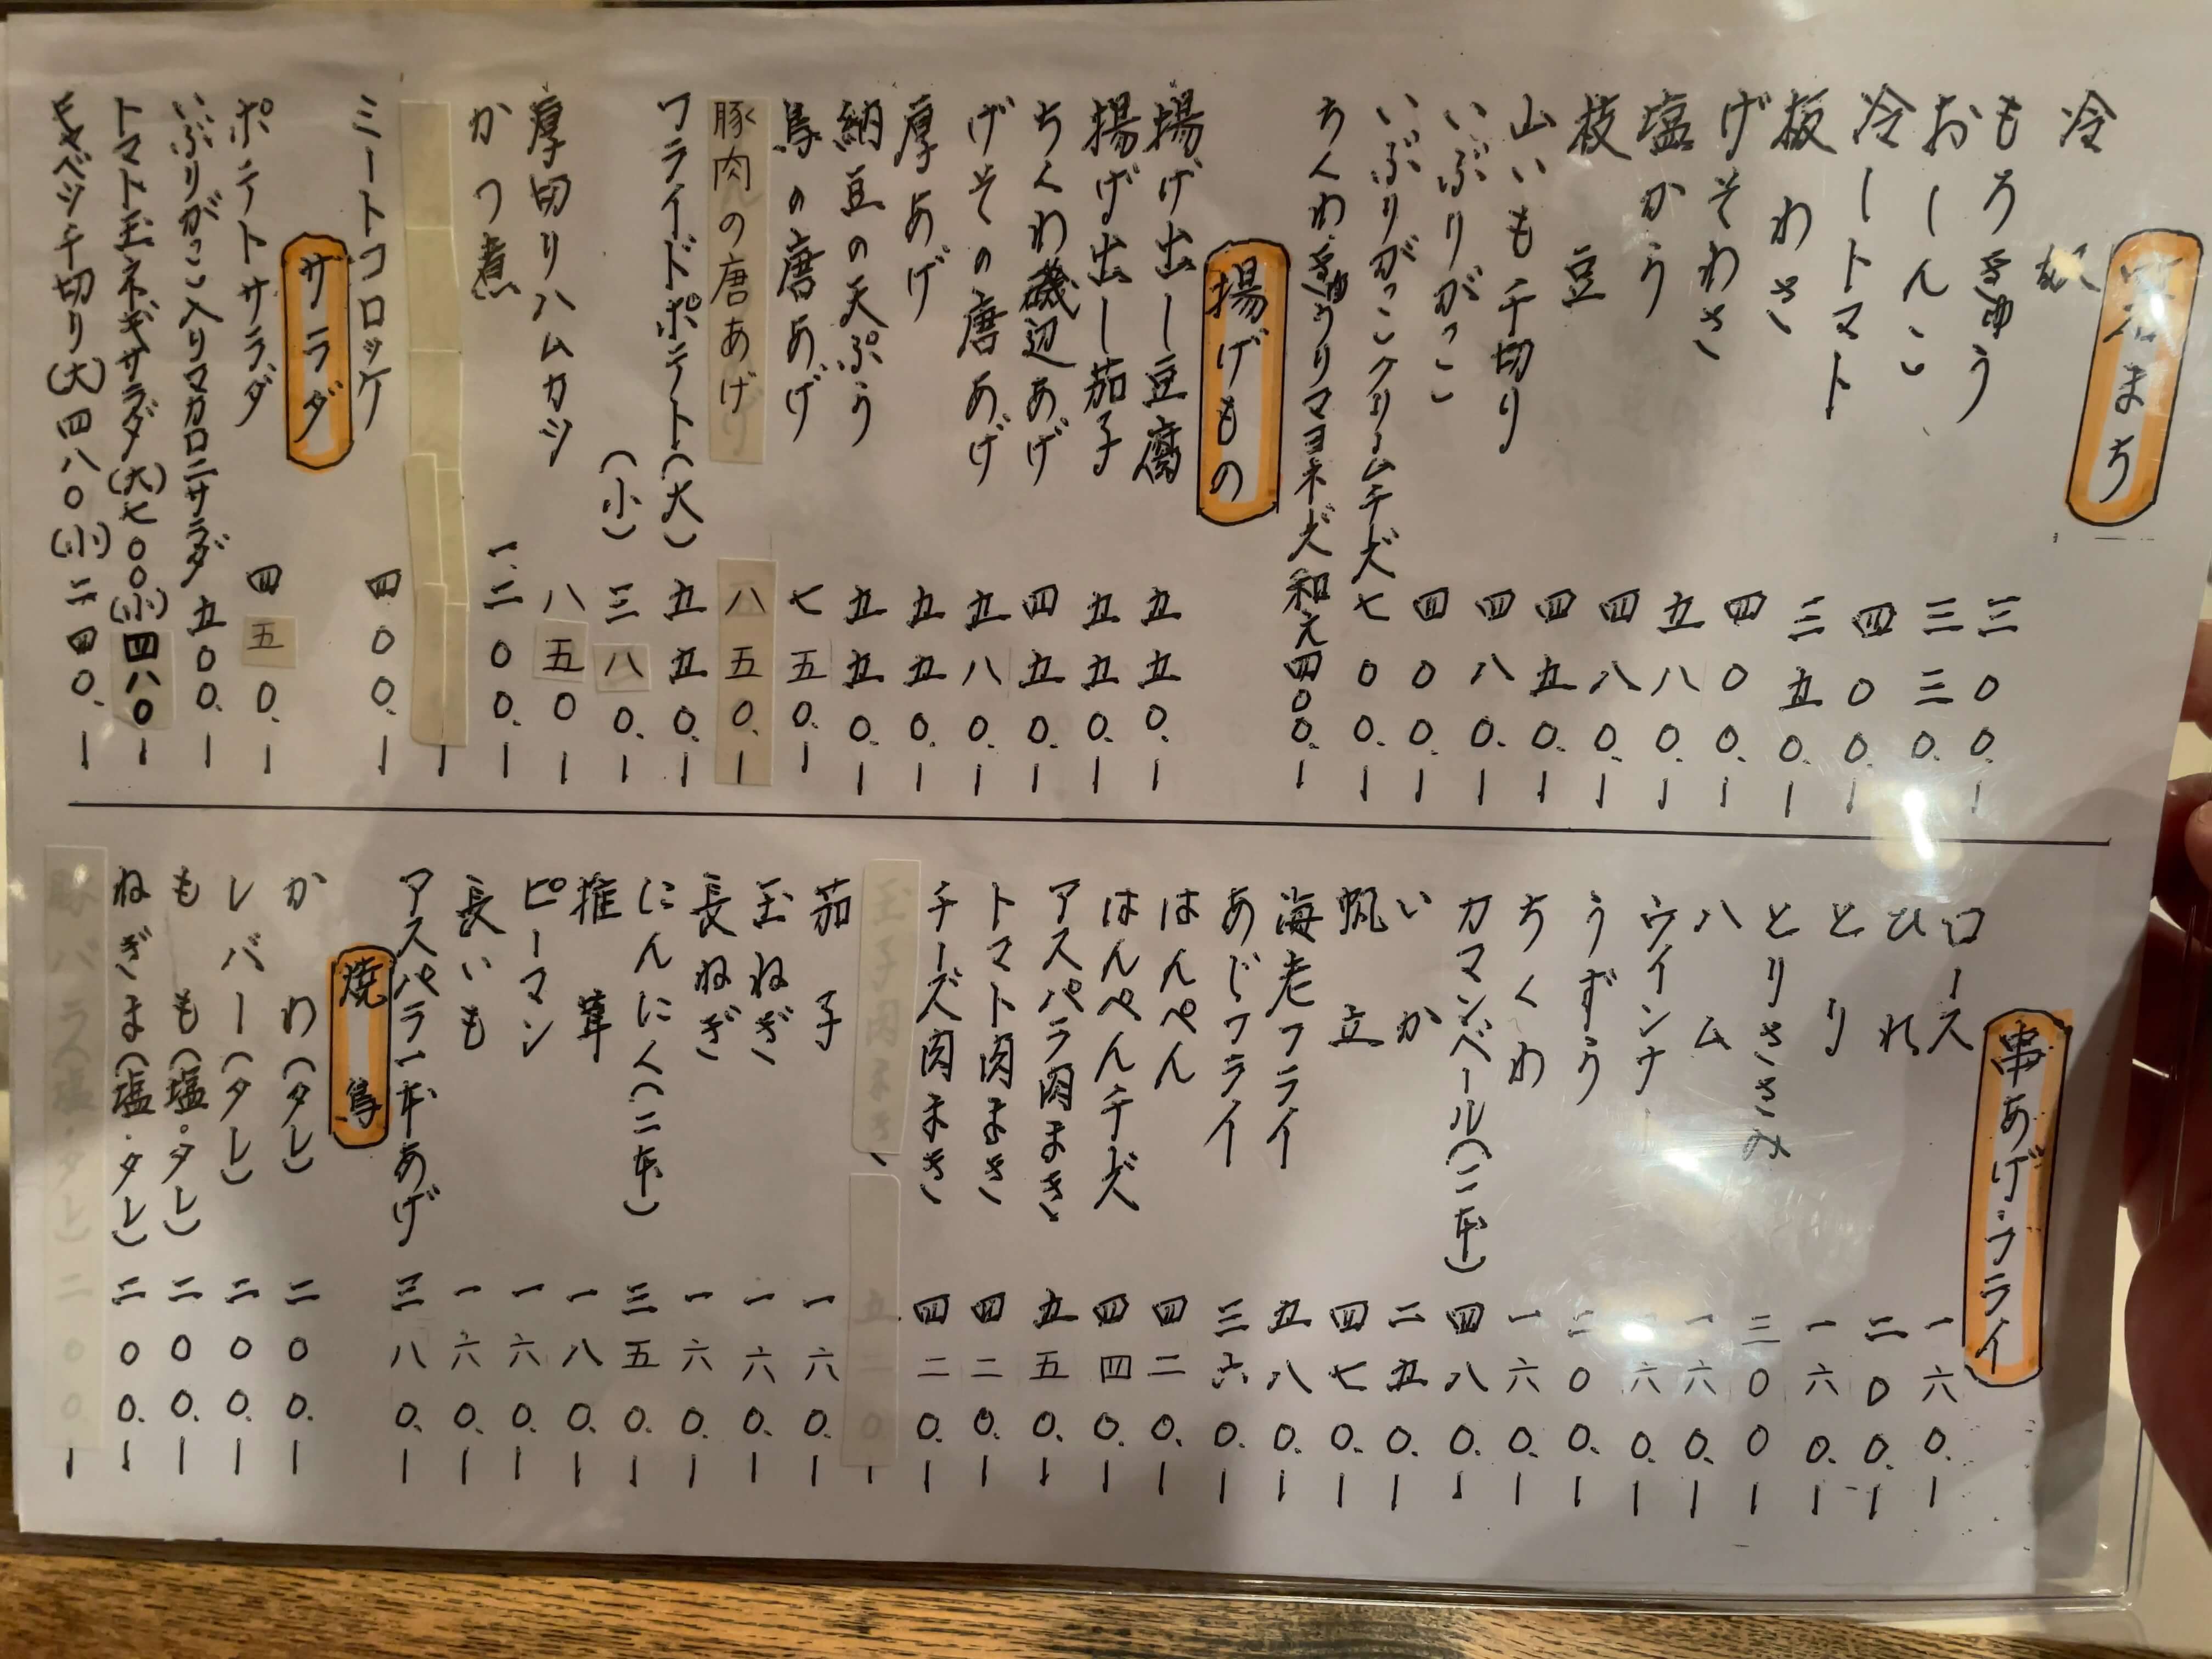 まち
冷奴
もろきゅう 三〇〇.ー
おしんこ 三三〇.ー
冷しトマト 四〇〇.ー
板わさ 三五〇.ー
げそわさ 四〇〇.ー
塩から 五八〇.ー
枝豆 四八〇.ー
山いも千切り 四五〇.ー
いぶりがっこ 四八〇.ー
いぶりがっこクリームチーズ 四〇〇.ー
七〇〇.ー
ちくわきゅうりマヨネーズ和え 四〇〇.ー
揚げもの
揚げ出し豆腐 五五〇.ー
揚げ出し茄子 五五〇.ー
ちくわ磯辺あげ 四五〇.ー
げその唐あげ 五八〇.ー
厚あげ 五五〇.ー
納豆の天ぷら 五五〇.ー
鳥の唐あげ 七五〇.ー
豚肉の唐あげ 八五〇.ー
フライドポテト(大) 五五〇.ー
(小) 三八〇.ー
厚切りハムカツ 八五〇ー
かつ煮 一.二〇〇.ー
ミートコロッケ 四〇〇.ー
サラダ
ポテトサラダ 四五〇.ー
いぶりがっこ入りマカロニサラダ 五〇〇.ー
トマト玉ネギサラダ(大)七〇〇(小)四八〇ー
キャベツ千切り(大)四八〇(小)二四〇.ー
串あげ・フライ
ロース 一六〇.ー
ひれ 二〇〇.ー
とり 一六〇.ー
とりささみ 三〇〇ー
ハム 一六〇.ー
ウインナー 一六〇.ー
うずら 二〇〇.ー
ちくわ 一六〇.ー
カマンベール(二本) 四八〇.ー
いか 二五〇.ー
帆立 四七〇.ー
海老フライ 五八〇.ー
あじフライ 三六〇.ー
はんぺん 四二〇.ー
はんぺんチーズ 四四〇.ー
アスパラ肉まき 五五〇.ー
トマト肉まき 四二〇.ー
チーズ肉まき 四二〇.ー
玉子肉まき 五二〇ー
茄子 一六〇.ー
玉ねぎ 一六〇.ー
長ねぎ 一六〇.ー
にんにく(二本) 三五〇.ー
椎茸 一八〇.ー
ピーマン 一六〇.ー
長いも 一六〇.ー
アスパラ一本あげ 三八〇.ー
焼鳥
かわ(タレ) 二〇〇.ー
レバー(タレ) 二〇〇.ー
もも(塩・タレ) 二〇〇.ー
ねぎま(塩・タレ) 二〇〇.ー
豚バラ(塩・タレ) 二〇〇.ー